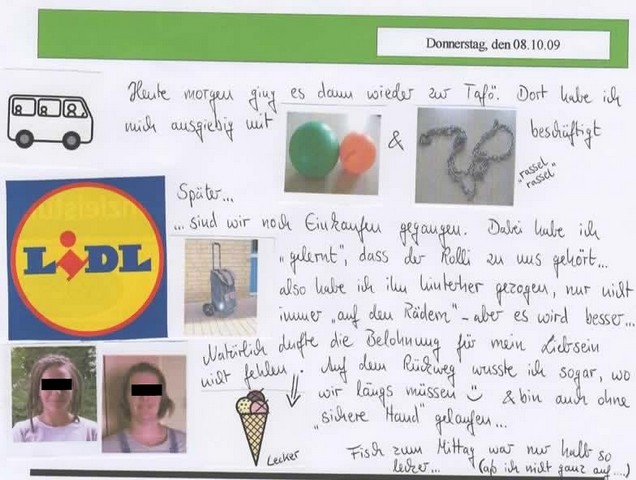 Donnerstag, den 08.10.09
Heute morgen ging es dann wieder zur Tafö. Dort habe ich
mich ausgiebig mit & beschäftigt
"rassel
rassel"
Später...
... sind wir noch Einkaufen gegangen. Dabei habe ich
LIDL
"gelernt", dass der Rolli zu uns gehört...
also habe ich ihn hinterher gezogen, nur nicht
immer "auf den Rädern" - aber es wird besser...
Natürlich durfte die Belohnung für mein Liebsein
nicht fehlen!! Auf dem Rückweg wusste ich sogar, wo
wir längs müssen & bin auch ohne
"sichere Hand" gelaufen...
Lecker
Fisch zum Mittag war nur halb so
lecker... (aß ich nicht ganz auf....)